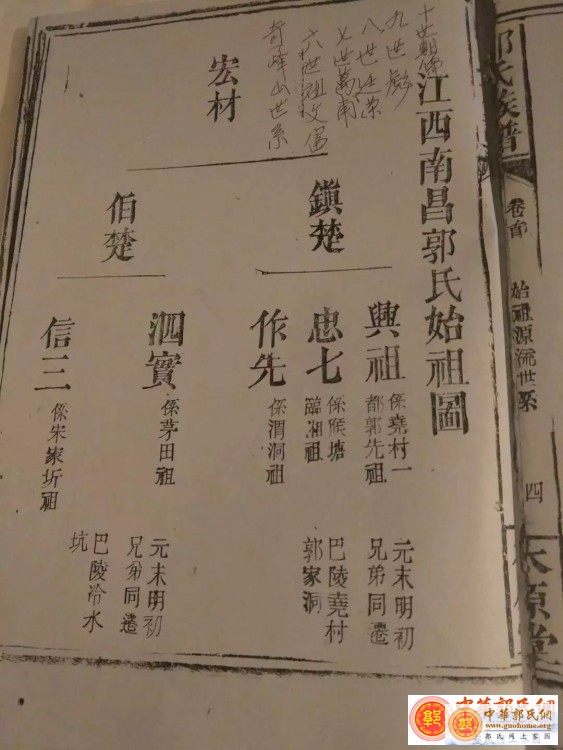 郭氏族譜
卷首
始祖源流世系
四
江西南昌郭氏始祖圖
十世朝
九世
八世廷
七世萬甫
六世祖
奇峰山世系
宏材
鎮楚
伯楚
興祖
係堯村一
都郭先祖
忠七
係猴塘
臨湘祖
作先
係渭洞祖
泗實
係茅田祖
信三
係宋家圻祖
元末明初
兄弟同遷
巴陵堯村
郭家洞
元末明初
兄弟同遷
巴陵冷水
坑
中華郭氏網
郭
中華郭氏網
www.guohome.org
郭氏網上家園